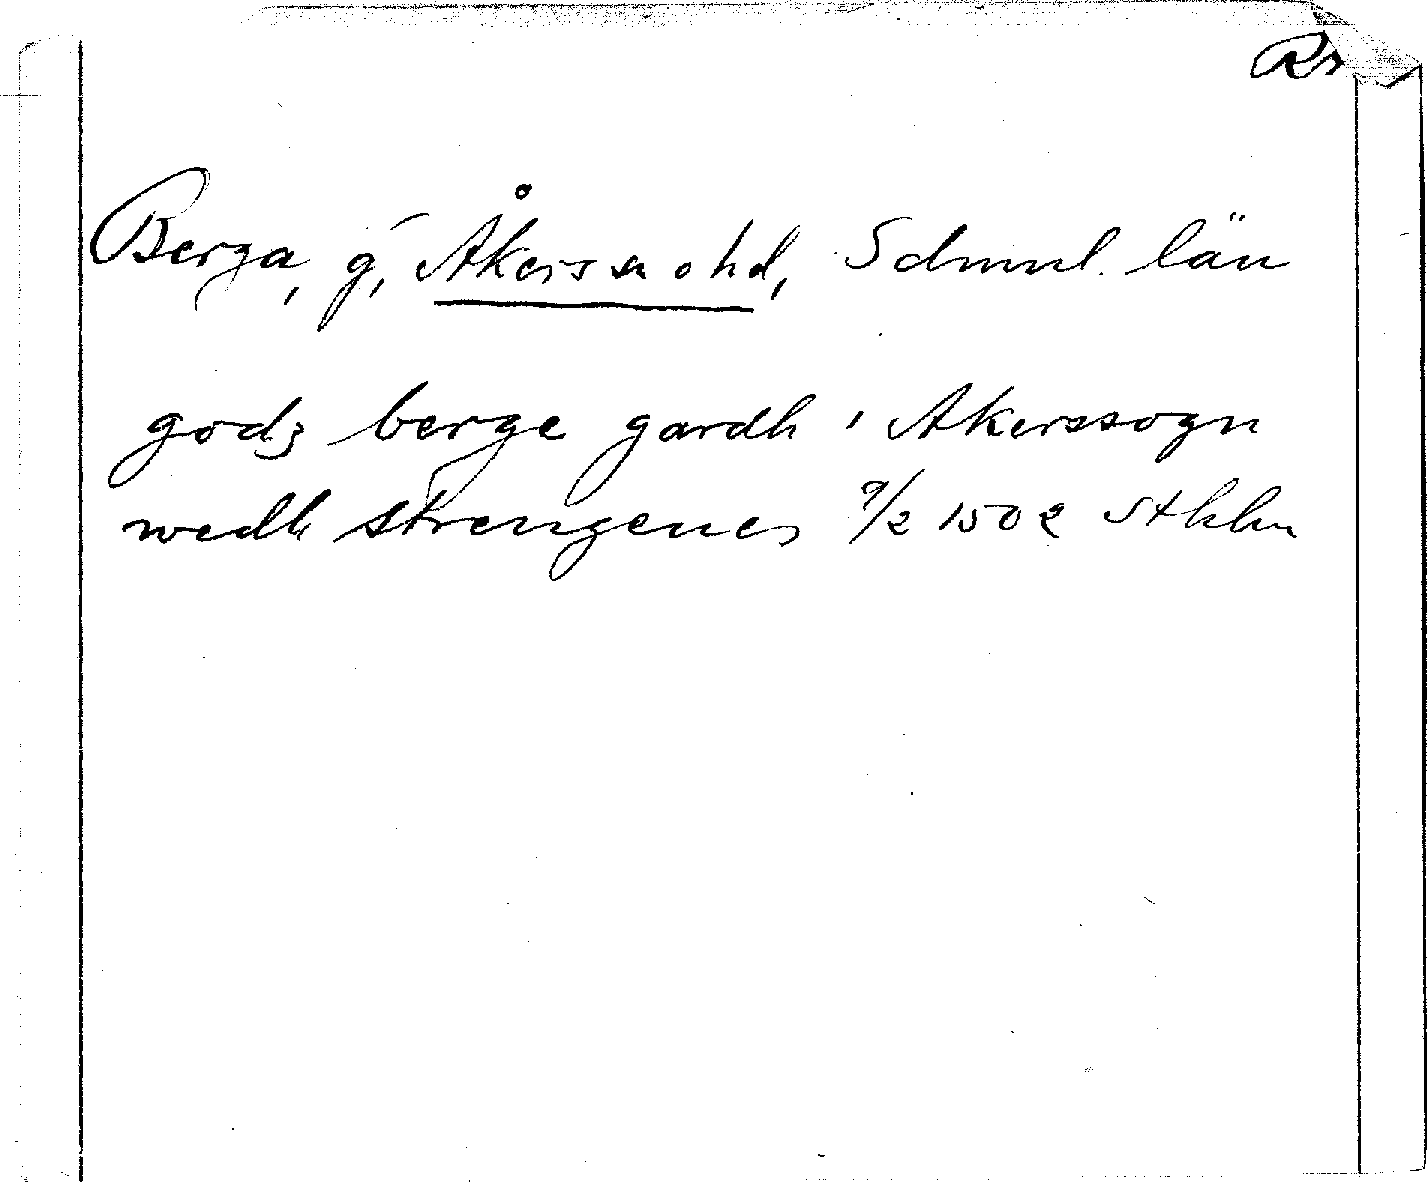 Rs
Berga, g, Åkers sn o hd, Sdmnl. län
godz berge gardh i Akerssogn
wedh strengenes 9/2 1502 Sthlm